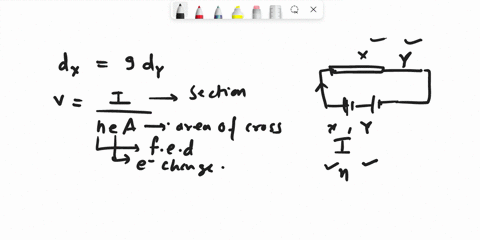 dx = 9 dy
V = I / neA
→ Section
→ area of cross
→ f.e.d
→ e⁻ change.
x y
x, y
I
n